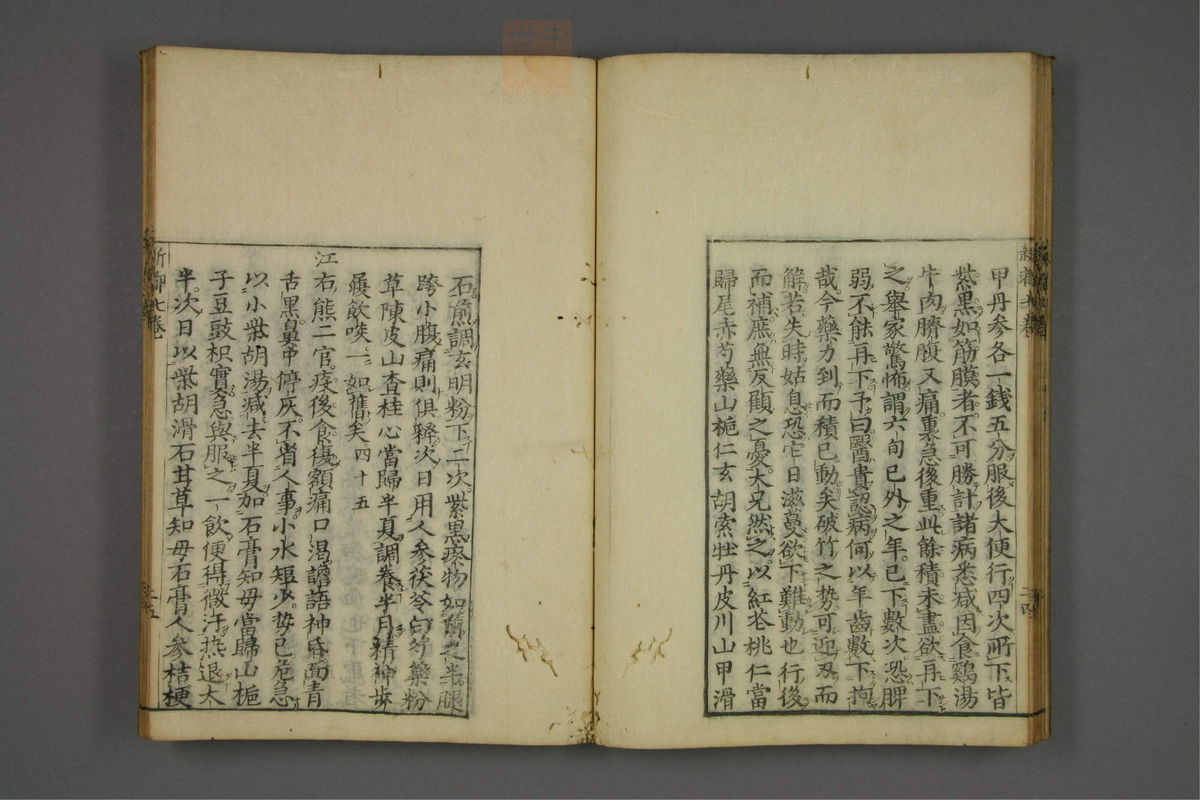 甲丹参各一銭五分服後大便行四次所下皆
紫黒如筋膜者不可勝計諸病悉减因食鷄湯
牛肉臍腹又痛裏急後重此餘積未盡欲再下
之舉家驚怖謂六旬已外之年已下數次恐脾
弱不能再下予曰醫貴認病何以年齒數下拘
哉今藥力到而積已動矣破竹之势可迎刃而
解若失時姑息恐它日滋蔓欲下難動也行後
而補庶無反顧之憂大兄然之以紅花桃仁當
歸尾赤芍藥山梔仁玄胡索牡丹皮川山甲滑
石煎調玄明粉下二次紫黒瘀物如前之半腿
胯小腹痛則俱釋次日用人参茯苓白芍藥粉
草陳皮山查桂心當歸半夏調養半月精神步
履飲啖一如舊矣四十五
江右熊二官疫後食復額痛口渇譫語神昏面青
舌黒鼻中停灰不省人事小水短少势已危急
以小柴胡湯减去半夏加石膏知毋當歸山梔
子豆豉枳實急與服之一飲便得微汗热退大
半次日以柴胡滑石甘草知毋石膏人参桔梗